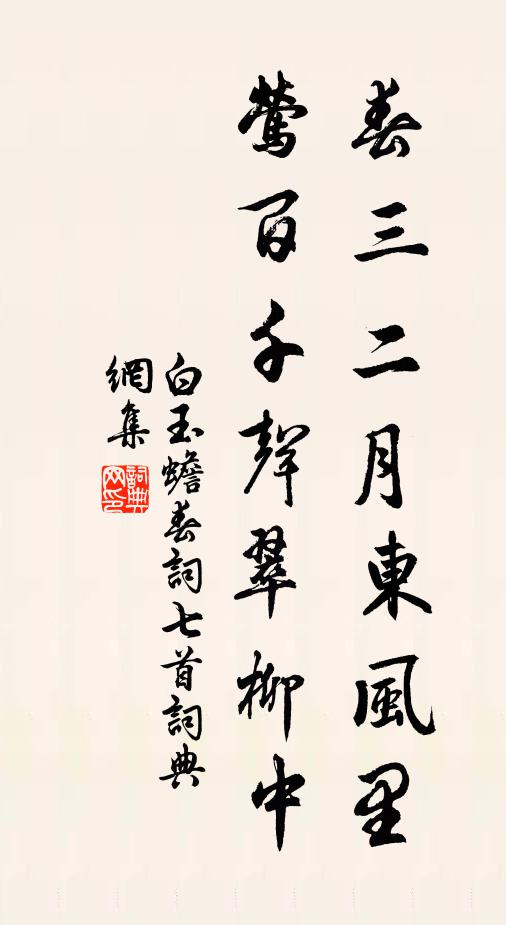 春三二月東風里
鶯百千聲翠柳中
白玉蟾春詞七首詞典
網集
詞典
网印